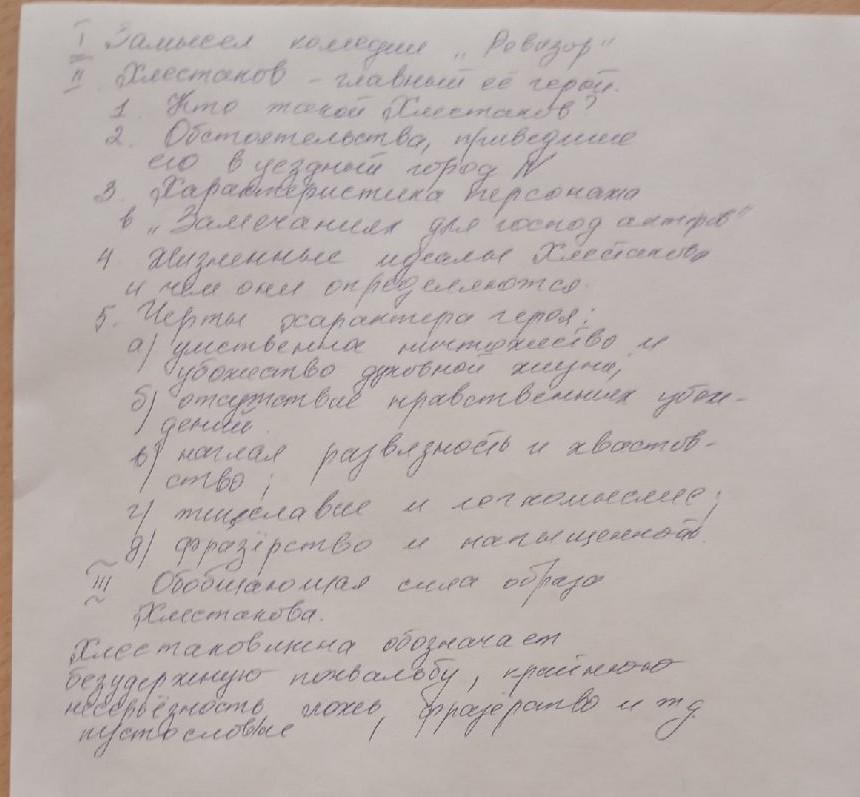 I Замысел комедии „Ревизор"
II Хлестаков – главный её герой.
1. Кто такой Хлестаков?
2. Обстоятельства, приведшие
его в уездный город N
3 Характеристика персонажа
в „Замечаниях для господ актёров"
4 Жизненные идеалы Хлестакова
и чем они определяются.
5. Черты характера героя:
а) умственное ничтожество и
убожество духовной жизни;
б) отсутствие нравственных убеж-
дений.
в) наглая развязность и хвастов-
ство;
г) тщеславие и легкомыслие;
д) фразёрство и напыщенность.
III Обобщающая сила образа
Хлестакова.
Хлестаковщина обозначает
безудержную похвальбу, крайнюю
несерьёзность, фразёрство и т д.
пустословие,